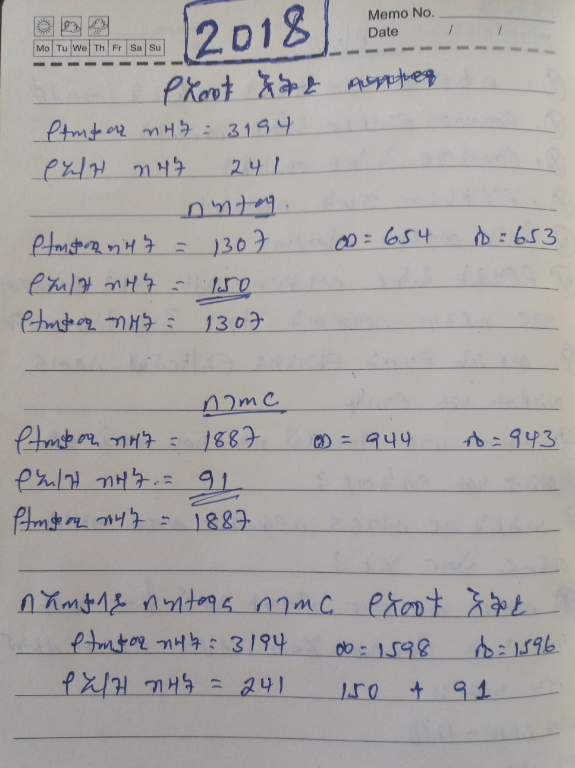 Memo No.
Mo Tu We Th Fr Sa Su
Date / /
2018
የአመቱ እቅድ
የተጠቃሚ ብዛት = 3194
የጀ/ሃ ብዛት 241
በከተማ
የተጠቃሚ ብዛት = 1307 ወ = 654 ሴ = 653
የጀ/ሃ ብዛት = 150
የተጠቃሚ ብዛት = 1307
በገጠር
የተጠቃሚ ብዛት = 1887 ወ = 944 ሴ = 943
የጀ/ሃ ብዛት = 91
የተጠቃሚ ብዛት = 1887
በአጠቃላይ በከተማና በገጠር የአመቱ እቅድ
የተጠቃሚ ብዛት = 3194 ወ = 1598 ሴ = 1596
የጀ/ሃ ብዛት = 241 150 + 91